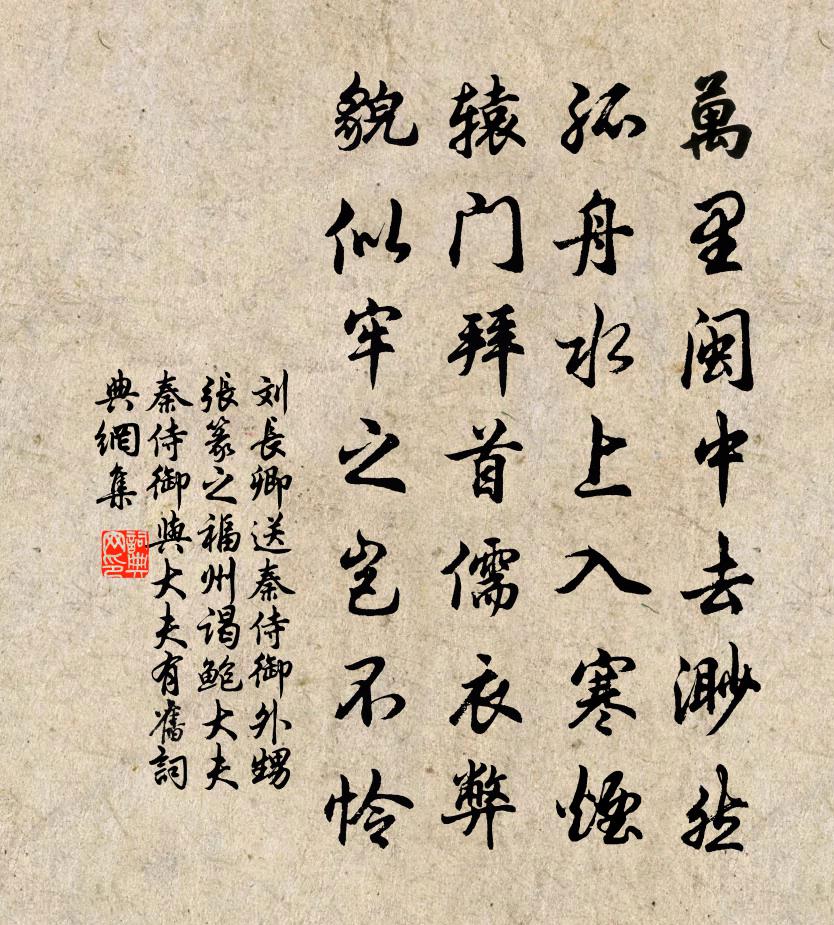 萬里閩中去渺然
孤舟水上入寒煙
辕门拜首儒衣弊
貌似牢之岂不怜
刘長卿送秦侍御外甥
張篆之福州谒鮑大夫
秦侍御與大夫有舊詞
典網集
詞典
网印